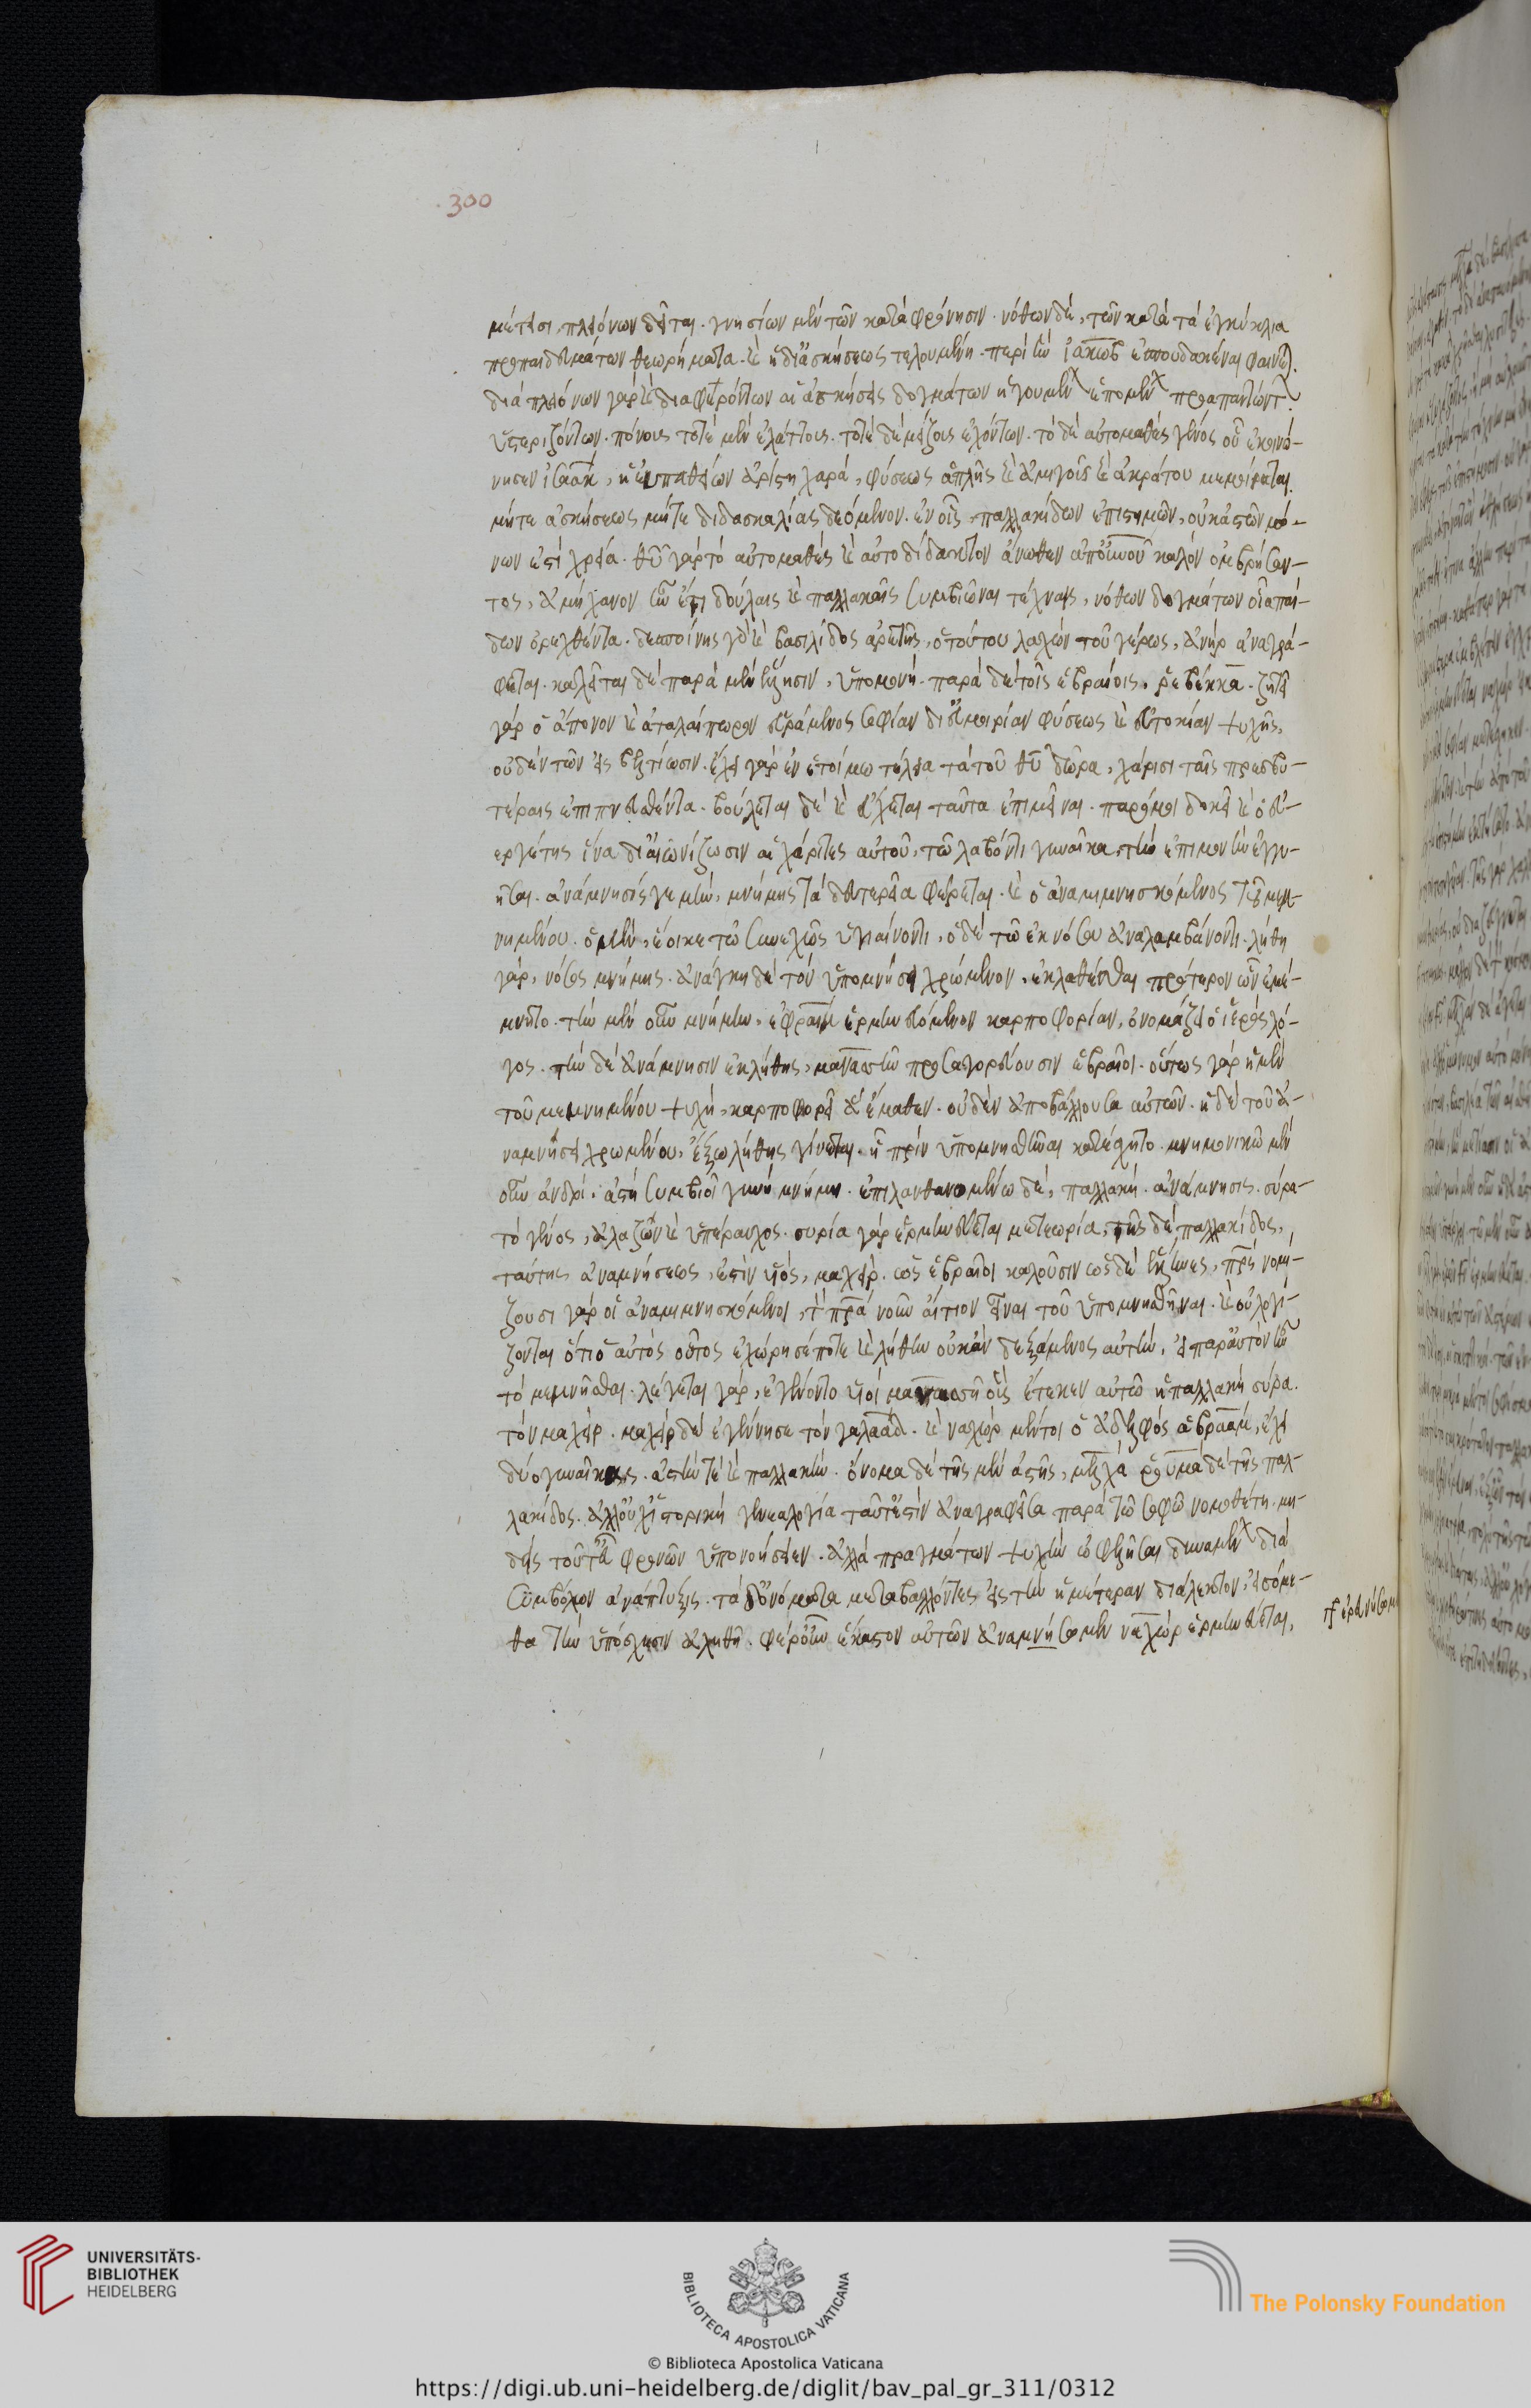 300
μέτεισι, πλειόνων δεῖται. γνησίων μὲν τῶν κατὰ φρόνησιν. νόθων δὲ, τῶν κατὰ τὰ ἐγκύκλια
προπαιδευμάτων θεωρήματα. καὶ ἡ δι' ἀσκήσεως τελουμένη. περὶ ἣν ἰακὼβ ἐσπουδακέναι φαίνεται.
διὰ πλειόνων γὰρ καὶ διαφερόντων αἱ ἀσκήσεις δογμάτων ἡγουμένων ἑπομένων προαπαντώντων
ὑστεριζόντων. πόνους τοτὲ μὲν ἐλάττους. τοτὲ δὲ μείζους ἐχόντων. τὸ δὲ αὐτομαθὲς γένος οὗ ἐκοινώ-
νησεν ἰσαὰκ, ἡ εὐπαθειῶν ἀρίστη χαρά, φύσεως ἁπλῆς καὶ ἀμιγοῦς καὶ ἀκράτου μεμοίραται.
μήτε ἀσκήσεως μήτε διδασκαλίας δεόμενον. ἐν οἷς παλλακίδων ἐπιστημῶν, οὐκ ἀστῶν μό-
νων ἐστὶ χρεία. θῦ γὰρ τὸ αὐτομαθὲς καὶ αὐτοδίδακτον ἄνωθεν ἀπ' οὐνοῦ καλὸν ὀμβρήσαν-
τος, ἀμήχανον ἦν ἔτι δούλαις καὶ παλλακαῖς συμβιῶναι τέχναις, νόθων δογμάτων οἷα παί-
δων ὀρεχθέντα. δεσποίνης γὰρ καὶ βασιλίδος ἀρετῆς, ὁ τούτου λαχὼν τοῦ γέρως, ἀνὴρ ἀναγρά-
φεται. καλεῖται δὲ παρὰ μὲν ἕλλησιν, ὑπομονή. παρὰ δὲ τοῖς ἑβραίοις, ῥεβέκκα. ζητεῖ
γὰρ ὁ ἄπονον καὶ ἀταλαίπωρον εὑράμενος σοφίαν δι' εὐμοιρίαν φύσεως καὶ εὐτοκίαν ψυχῆς,
οὐδὲν τῶν εἰς βελτίωσιν. ἔχει γὰρ ἐν ἑτοίμω τέλεια τὰ τοῦ θῦ δῶρα, χάρισι ταῖς πρεσβυ-
τέραις ἐπιπνευσθέντα. βούλεται δὲ καὶ εὔχεται ταῦτα ἐπιμεῖναι. παρόμοι δοκεῖ καὶ ὁ εὐ-
εργέτης ἵνα διαιωνίζωσιν αἱ χάριτες αὐτοῦ, τῶ λαβόντι γυναῖκα τὴν ἐπιμονὴν ἐγγυ-
ῆσαι. ἀνάμνησίς γε μὴν, μνήμης τὰ δευτερεῖα φέρεται. καὶ ὁ ἀναμιμνησκόμενος τοῦ μεμ-
νημένου. ὁ μὲν, ἔοικε τῶ συνεχῶς ὑγιαίνοντι, ὁ δὲ τῶ ἐκ νόσου ἀναλαμβάνοντι. λήθη
γὰρ, νόσος μνήμης. ἀνάγκη δὲ τὸν ὑπομνήσει χρώμενον, ἐκλαθέσθαι πρότερον ὧν ἐμέ-
μνητο. τὴν μὲν οὖν μνήμην, ἐφραὶμ ἑρμηνευόμενον καρποφορίαν, ὀνομάζει ὁ ἱερὸς λό-
γος. τὴν δὲ ἀνάμνησιν ἐκ λήθης, μανασσῆν προσαγορεύουσιν ἑβραῖοι. οὕτως γὰρ ἡ μὲν
τοῦ μεμνημένου ψυχὴ, καρποφορεῖ ἃ ἔμαθεν. οὐδὲν ἀποβάλλουσα αὐτῶν. ἡ δὲ τοῦ ἀ-
ναμνήσει χρωμένου, ἔξω λήθης γίνεται. ἣ πρὶν ὑπομνησθῆναι κατέσχητο. μνημονικῶ μὲν
οὖν ἀνδρὶ, ἀστὴ συμβιοῖ γυνὴ μνήμη. ἐπιλανθανομένω δὲ, παλλακὴ. ἀνάμνησις. σύρα
τὸ γένος, ἀλαζὼν καὶ ὑπέραυχος. συρία γὰρ ἑρμηνεύεται μετεωρία, τῆς δὲ παλλακίδος,
ταύτης ἀναμνήσεως, ἐστὶν υἱὸς, μαχεὶρ. ὡς ἑβραῖοι καλοῦσιν ὡς δὲ ἕλληνες, πρς νομί-
ζουσι γὰρ οἱ ἀναμιμνησκόμενοι, τὸ πρα νοῦν αἴτιον εἶναι τοῦ ὑπομνησθῆναι. καὶ οὐ λογί-
ζονται ὅτι ὁ αὐτὸς οὗτος ἐχώρησέ ποτε καὶ λήθην οὐκ ἂν δεξάμενος αὐτὴν, εἰ παρ' αὐτὸν ἦν
τὸ μεμνῆσθαι. λέγεται γὰρ, ἐγένοντο υἱοὶ μανασσῆ οἷς ἔτεκεν αὐτῶ ἡ παλλακὴ σύρα.
τὸν μαχεὶρ. μαχεὶρ δὲ ἐγέννησε τὸν γαλαὰδ. καὶ ναχὼρ μέντοι ὁ ἀδελφὸς ἀβραὰμ, ἔχει
δύο γυναῖκας. ἀστήν τε καὶ παλλακήν. ὄνομα δὲ τῆς μὲν ἀστῆς, μελχὰ ῥουμὰ δὲ τῆς παλ-
λακίδος. ἀλλ' οὐχ ἱστορικὴ γενεαλογία ταῦτ' ἐστὶν ἀναγραφεῖσα παρὰ τῶ σοφῶ νομοθέτη. μη-
δεὶς τοῦτ' εὖ φρονῶν ὑπονοήσειεν. ἀλλὰ πραγμάτων ψυχὴν ὠφελῆσαι δυναμένων διὰ
συμβόλων ἀνάπτυξις. τὰ δ' ὀνόματα μεταβαλλόντες εἰς τὴν ἡμετέραν διάλεκτον, εἰσόμε-
θα τὴν ὑπόσχεσιν ἀληθῆ. φέρ' οὖν ἕκαστον αὐτῶν ἀναμνήσωμεν ναχὼρ ἑρμηνεύεται,
UNIVERSITÄTS-
BIBLIOTHEK
HEIDELBERG
BIBLIOTECA APOSTOLICA VATICANA
The Polonsky Foundation
© Biblioteca Apostolica Vaticana
https://digi.ub.uni-heidelberg.de/diglit/bav_pal_gr_311/0312